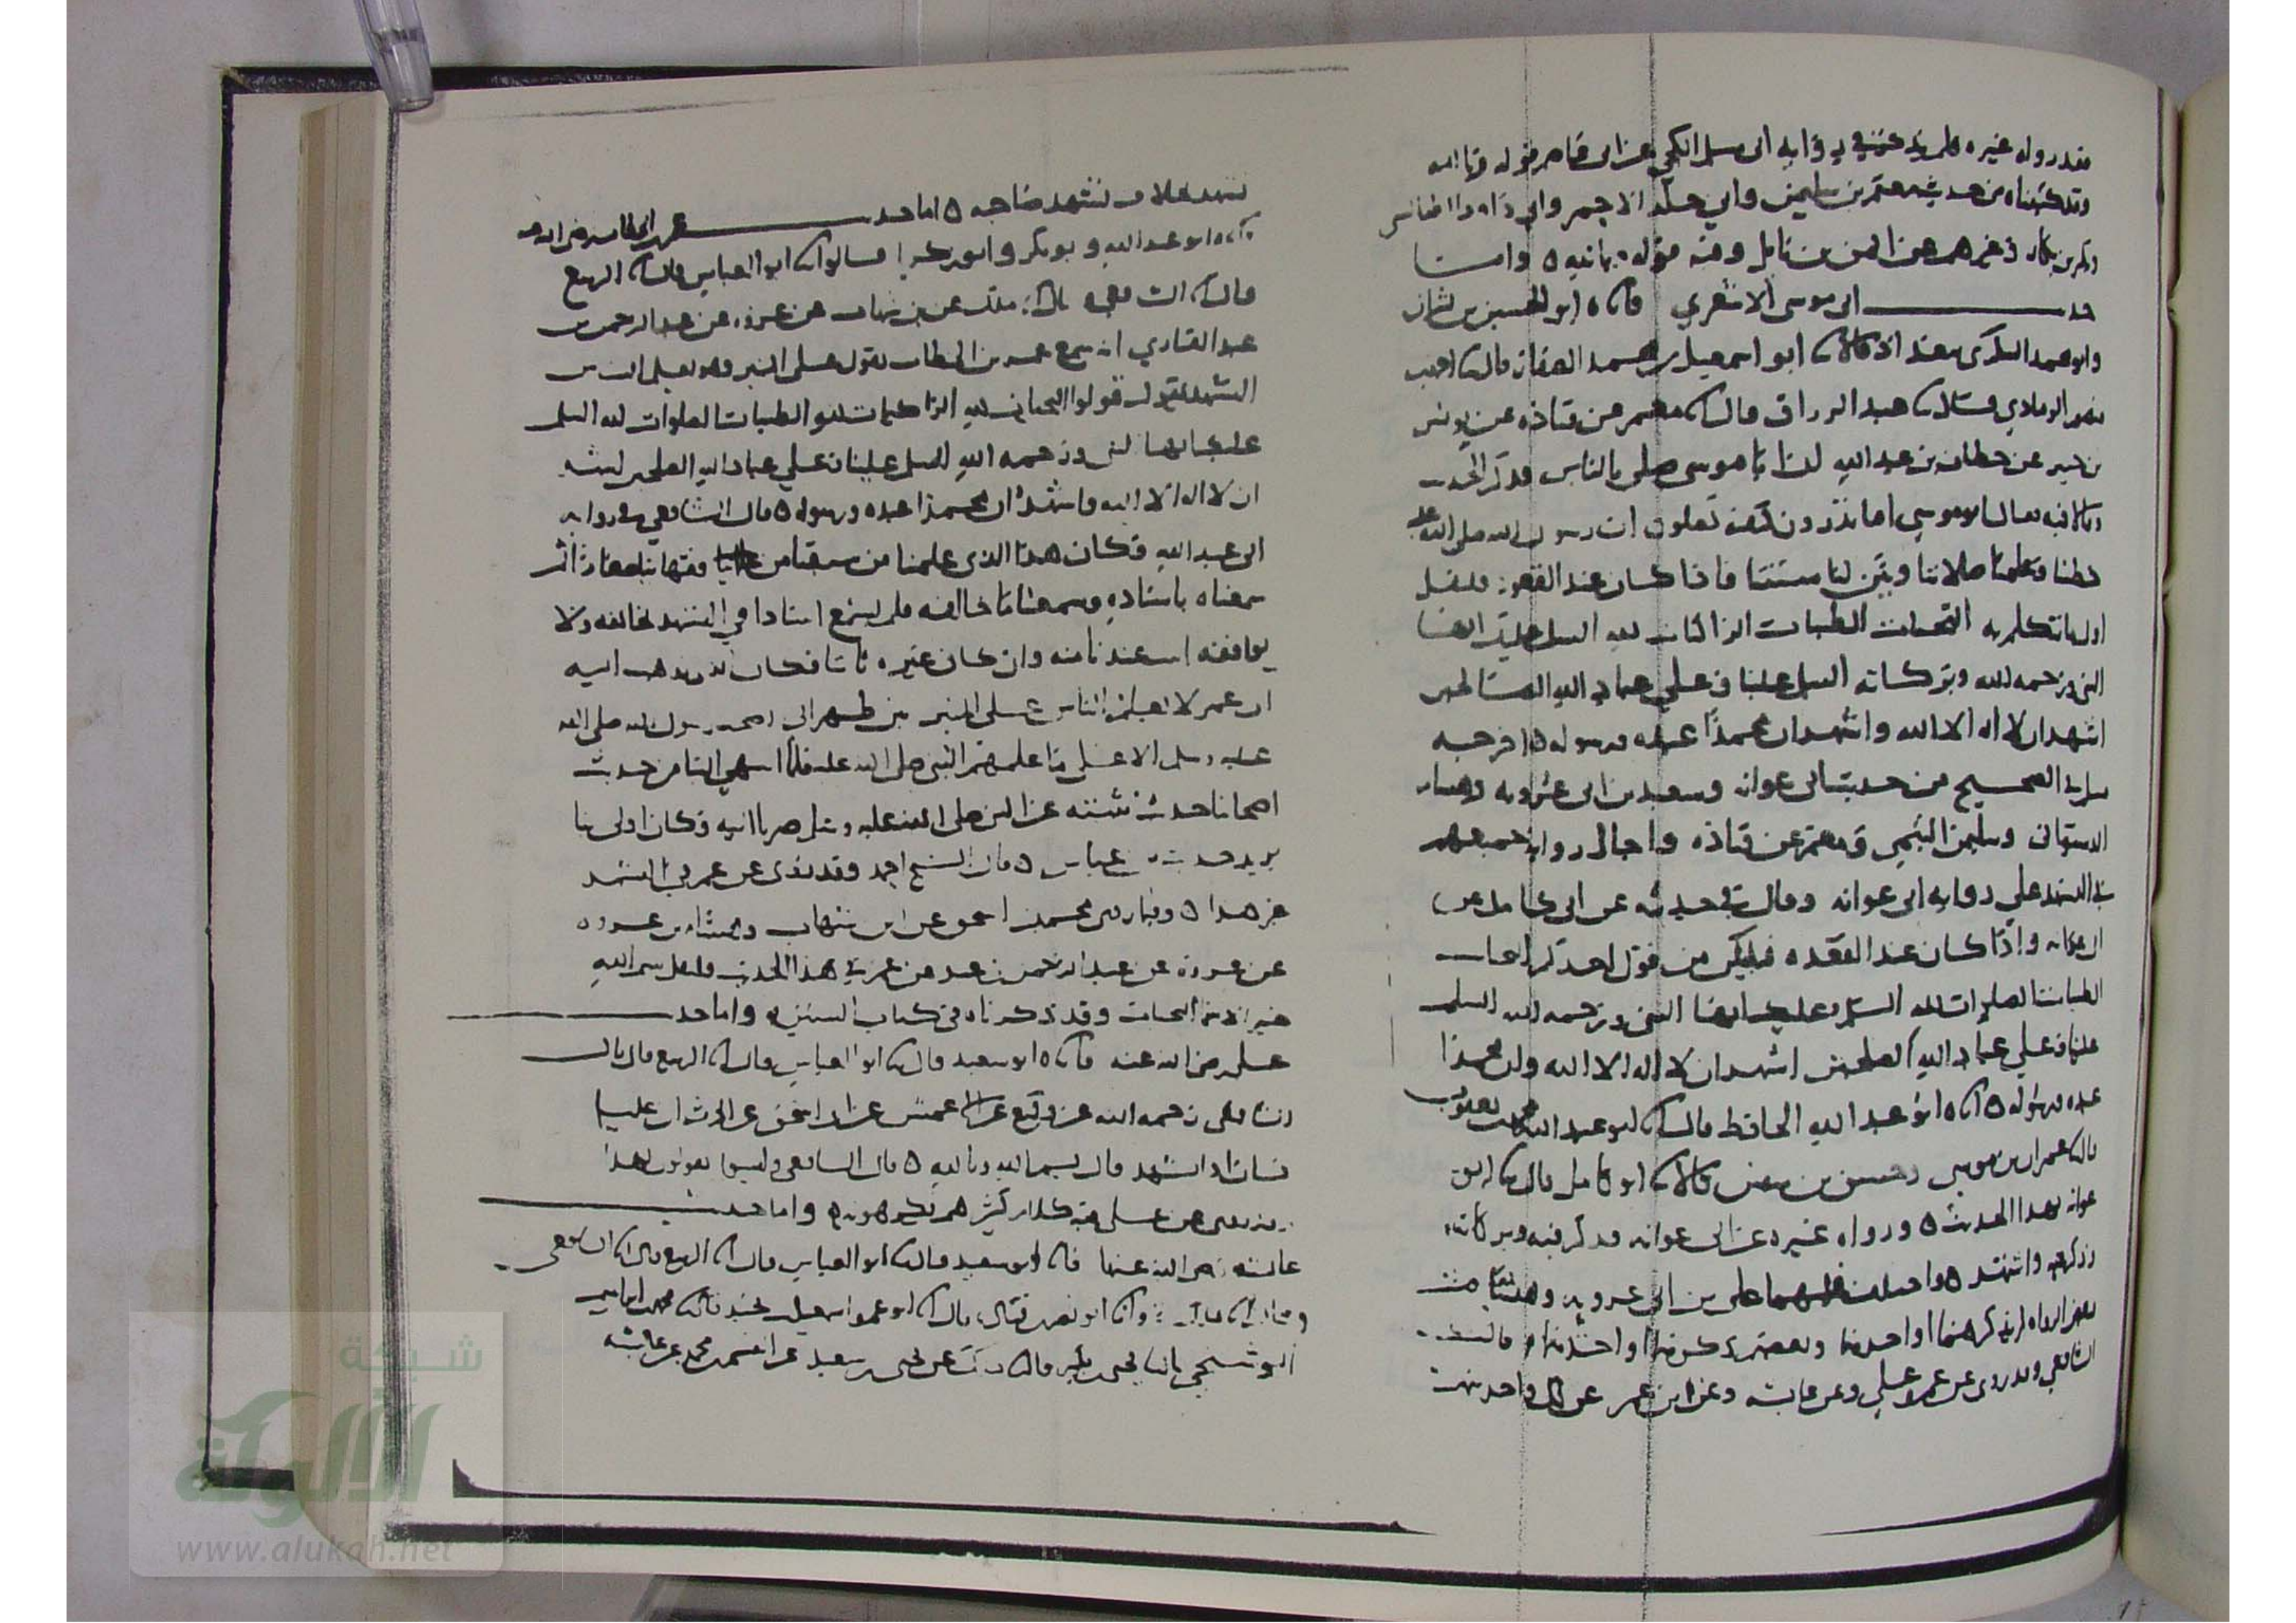 وقد رواه غيره فلم يذكر
وقد كتبناه من حديث معتمر بن سليمن وابي خالد الاحمر وابي داود
وغيرهم عن ايمن بن نابل ومنه قوله وبالله ٥ واما
حديث ابي موسى الاشعري فاخبرناه ابو الحسين بن بشران
وابو محمد السكري ببغداد قالا ابو اسمعيل بن محمد الصفار قال احمد بن
منصور الرمادي قال عبد الرزاق قال معمر عن قتادة عن يونس
بن جبير عن حطان بن عبد الله ان ابا موسى صلى بالناس فذكر الحديث
وقال فيه فقال ابو موسى اما تدرون كيف تصلون ان رسول الله صلى الله عليه
خطبنا وعلمنا صلاتنا وبين لنا سنتنا فاذا كان عند القعود فليقل
اول ما يتكلم به التحيات الطيبات الزاكيات لله السلم عليك ايها
النبي ورحمه الله وبركاته السلم علينا وعلى عباد الله الصالحين
اشهد ان لا اله الا الله واشهد ان محمدا عبده ورسوله ٥ اخرجه
مسلم في الصحيح من حديث ابي عوانه وسعيد بن ابي عروبه وهشام
الدستوائي وسليمن التيمي ومعمر عن قتاده واحال رواية جميعهم
في التشهد علي رواية ابي عوانه وقال في حديثه عن ابي كامل عن
ابي عوانه واذا كان عند القعده فليكن من قول احدكم التحيات
الطيبات الصلوات لله السلم عليك ايها النبي ورحمه الله السلم
علينا وعلي عباد الله الصلحين اشهد ان لا اله الا الله وان محمدا
عبده ورسوله ٥ ابو عبد الله الحافظ قال ابو عبد الله محمد بن يعقوب
قال عمران بن موسى وحسين بن قالا ابو كامل قال ابو
عوانه بهذا الحديث ٥ ورواه غيره عن ابي عوانه فذكر فيه وبركاته
وذكر فيه واشهد ٥ واختلف فيهما على بن ابي عروبه وهشام
بعض الرواه لم يذكرهما او احدهما وبعضهم ذكرهما او احدهما ٥ قال
الشافعي وقد روى عن عمر وعلي وعن عايشه وعن ابن عمر عن كل واحد منهم
تشهد خلاف تشهد صاحبه ٥ اما حديث عمر بن الخطاب رضى الله عنه
فاخبرناه ابو عبد الله وابو بكر وابو زكريا قالوا ابو العباس قال الربيع
قال الشافعي قال ملك عن بن شهاب عن عروه عن عبد الرحمن بن
عبد القاري انه سمع عمر بن الخطاب يقول على المنبر وهو يعلم الناس
التشهد يقول قولوا التحيات لله الزاكيات لله الطيبات الصلوات لله السلم
عليك ايها النبى ورحمه الله السلم علينا وعلى عباد الله الصلحين اشهد
ان لا اله الا الله واشهد ان محمدا عبده ورسوله ٥ قال الشافعي في رواية
ابي عبد الله فكان هذا الذى علمنا من سبقنا من فقهائنا صغارا ثم
سمعناه باسناده وسمعنا ما خالفه فلم نسمع اسنادا في التشهد يخالفه ولا
يوافقه اثبت عندنا منه وان كان غيره ثابتا فكان الذي نذهب اليه
ان عمر لا يعلم الناس على المنبر بين ظهراني اصحاب رسول الله صلى الله
عليه وسلم الا على ما علمهم النبى صلى الله عليه فلما انتهي الينا من حديث
اصحابنا حديث نثبته عن النبى صلى الله عليه وسلم صرنا اليه وكان اولى بنا
يريد حديث بن عباس ٥ قال الشيخ احمد وقد روى عن عمر في التشهد
غير هذا ٥ وفيما روى محمد بن اسحق عن ابن شهاب وهشام بن عروه
عن عروه عن عبد الرحمن بن عبد عن عمر في هذا الحديث فليقل بسم الله
خير الاسما التحيات وقد ذكرناه في كتاب السنن ٥ واما حديث
على رضى الله عنه فاخبرناه ابو سعيد قال ابو العباس قال الربيع قال قال
الشافعى رحمه الله عن وكيع عن الاعمش عن ابي اسحق عن الحرث ان عليا
كان اذا تشهد قال بسم الله وبالله ٥ قال الشافعى وليسوا يقولون بهذا
وقد روى عن على فيه كلام كثير هم يكرهونه ٥ واما حديث
عايشه رضى الله عنها فاخبرنا ابو سعيد قال ابو العباس قال الربيع قال الشافعى
قال مالك وانا ابو نصر بن قتاده قال ابو عمرو اسمعيل بن نجيد قال محمد بن ابراهيم
البوشنجي قال يحيى بن بكير قال ملك عن يحيى بن سعيد عن القسم بن محمد عن عايشه
شبكة
الألوكة
www.alukah.net